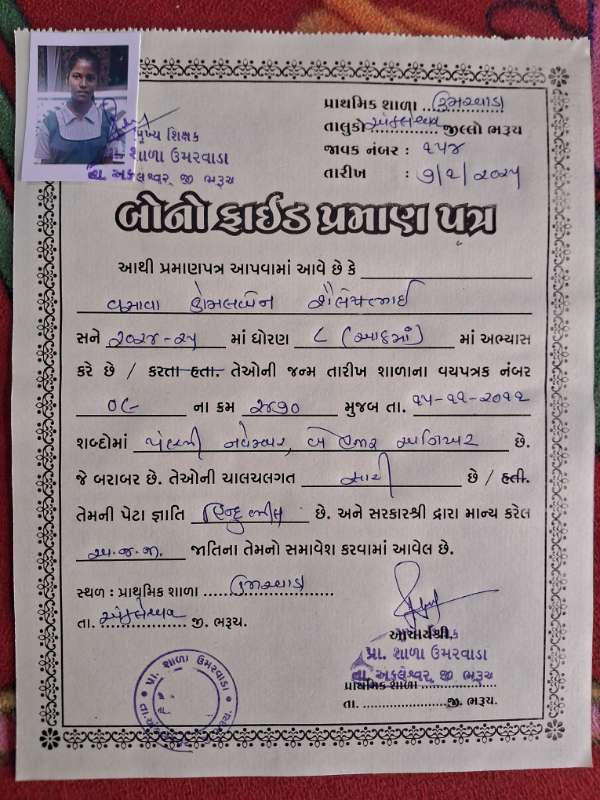 પ્રાથમિક શાળા ઉમરવાડા
તાલુકો અંકલેશ્વર જીલ્લો ભરૂચ
જાવક નંબર : ૨૫૪
તારીખ : ૭/૨/૨૦૨૫
મુખ્ય શિક્ષક
પ્રા. શાળા ઉમરવાડા
તા. અંકલેશ્વર, જી ભરૂચ
બોનોફાઈડ પ્રમાણ પત્ર
આથી પ્રમાણપત્ર આપવામાં આવે છે કે
વસાવા કોમલબેન શૈલેષભાઈ
સને ૨૦૨૪-૨૫ માં ધોરણ ૮ (આઠમાં) માં અભ્યાસ
કરે છે / કરતા હતા. તેઓની જન્મ તારીખ શાળાના વયપત્રક નંબર
૦૯ ના ક્રમ ૨૪૭૦ મુજબ તા. ૧૫-૧૧-૨૦૧૧
શબ્દોમાં પંદરમી નવેમ્બર, બે હજાર અગિયાર છે.
જે બરાબર છે. તેઓની ચાલચલગત સારી છે / હતી.
તેમની પેટા જ્ઞાતિ હિન્દુ ભીલ છે. અને સરકારશ્રી દ્વારા માન્ય કરેલ
અ.જ.જા. જાતિના તેમનો સમાવેશ કરવામાં આવેલ છે.
સ્થળ : પ્રાથમિક શાળા ઉમરવાડા
તા. અંકલેશ્વર જી. ભરૂચ.
આચાર્યશ્રી,
પ્રા. શાળા ઉમરવાડા
તા. અંકલેશ્વર, જી ભરૂચ
પ્રાથમિક શાળા
તા. જી. ભરૂચ.
પ્રા. શાળા ઉમરવાડા